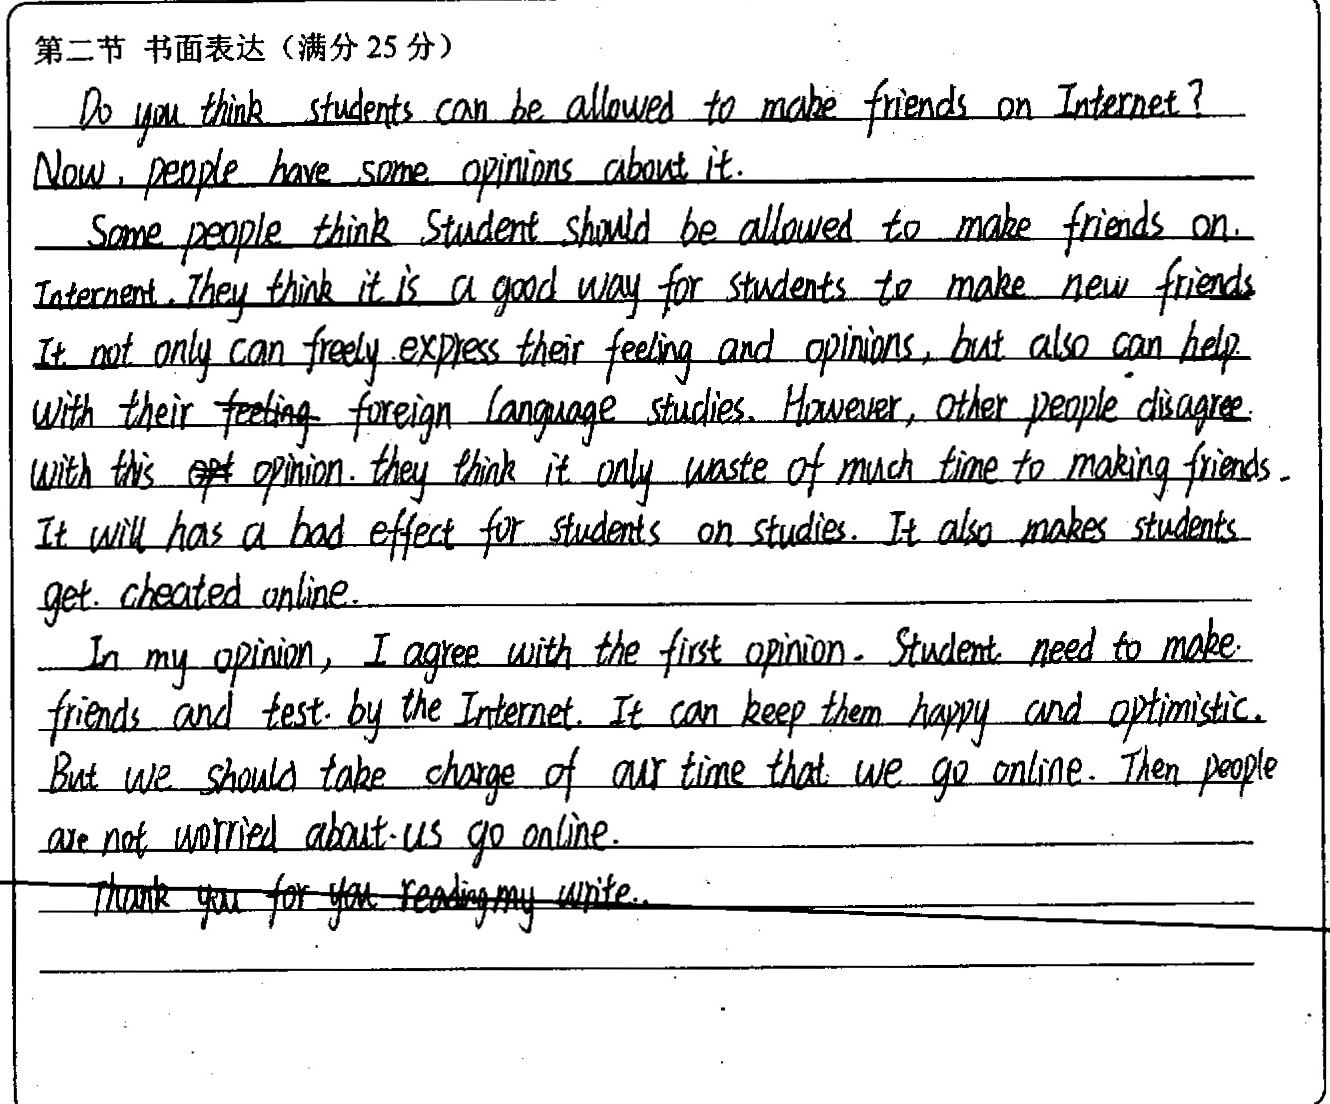 第二节 书面表达（满分 25 分）
Do you think students can be allowed to make friends on Internet?
Now, people have some opinions about it.
Some people think Student should be allowed to make friends on.
Internent. They think it is a good way for students to make new friends
It not only can freely express their feeling and opinions, but also can help
with their feeling foreign language studies. However, other people disagree.
with this opt opinion. they think it only waste of much time to making friends.
It will has a bad effect for students on studies. It also makes students
get. cheated online.
In my opinion, I agree with the first opinion. Student need to make.
friends and test. by the Internet. It can keep them happy and optimistic.
But we should take charge of our time that we go online. Then people
are not worried about us go online.
Thank you for you reading my write.